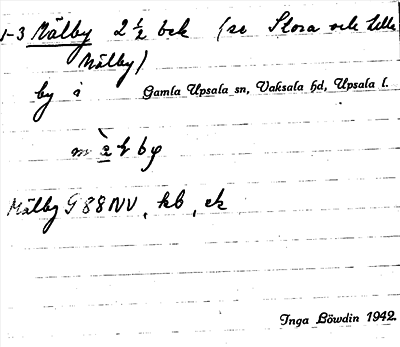 1-3 Mälby 2 1/2 bck (se Stora och Lilla
Mälby)
by i Gamla Upsala sn, Vaksala hd, Upsala l.
Mälby G 88 NV, kb, ek
Inga Löwdin 1942.